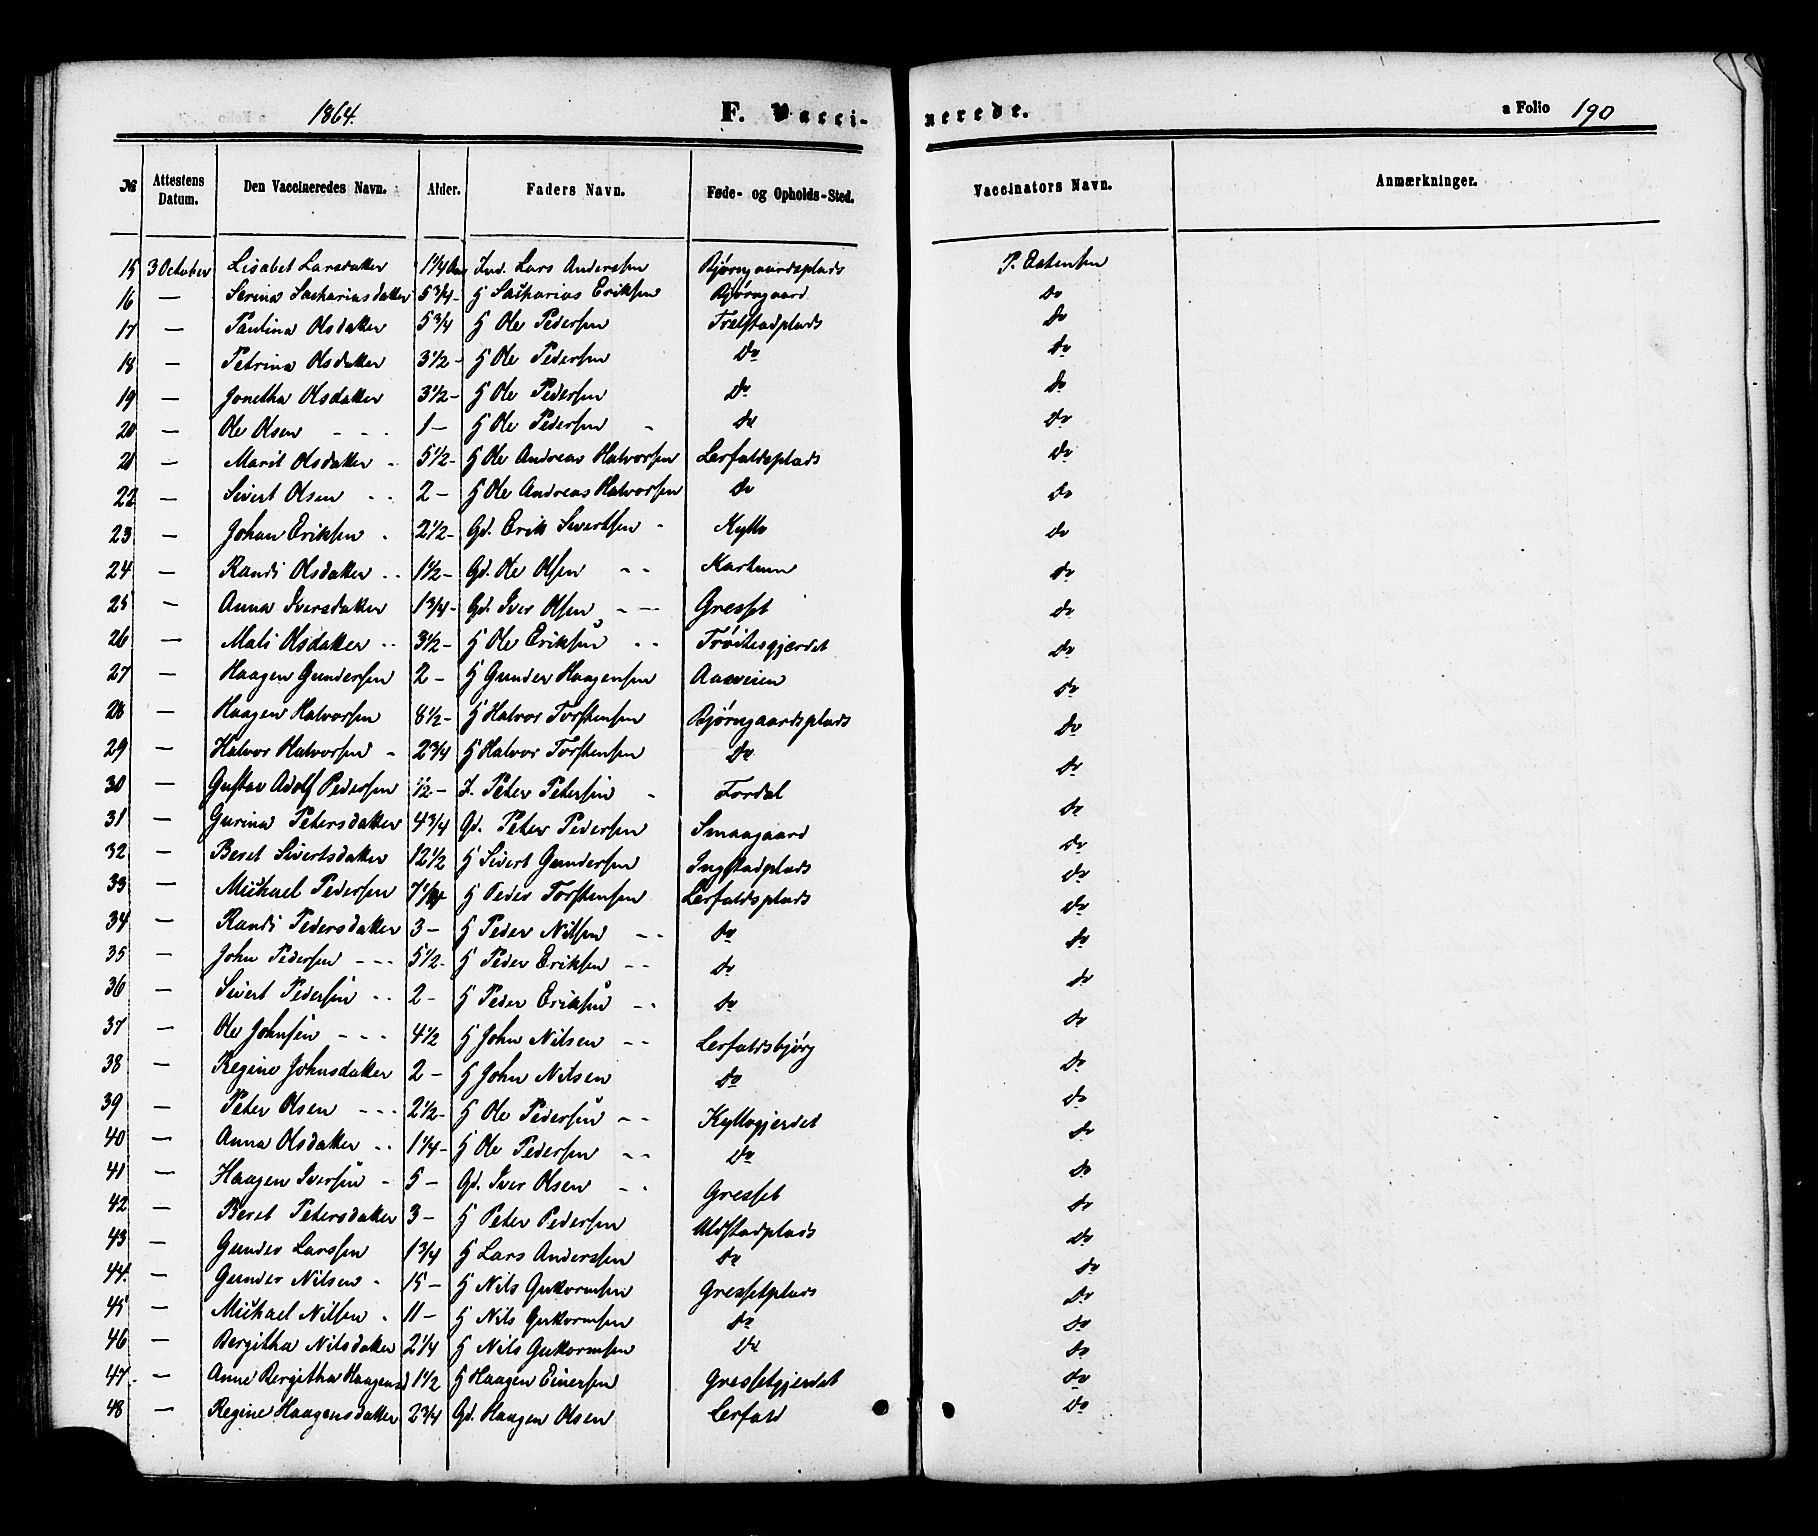 1864. F. Vaccinerede. a Folio 190
№ Attestens Datum. Den Vaccineredes Navn. Alder. Faders Navn. Føde- og Opholds-Sted. Vaccinators Navn. Anmærkninger.
15 3 October Lisabet Larsdatter 1 1/4 Aar Ind. Lars Anderssen Bjørngaardsplads P. Estensen
16 — Serina Sachariasdatter 5 3/4 - H Sacharias Eriksen Bjørngaard do
17 — Paulina Olsdatter 5 3/4 H Ole Pedersen Trelstadplads do
18 — Petrina Olsdatter 3 1/2 - H Ole Pedersen Do do
19 — Jonetha Olsdatter 3 1/2 - H Ole Pedersen do do
20 — Ole Olsen - - - 1 - H Ole Pedersen - do do
21 — Marit Olsdatter - 5 1/2 - H Ole Andreas Halvorsen Lerfaldsplads do
22 — Sivert Olsen - - 2 - H Ole Andreas Halvorsen do do
23 — Johan Eriksen - 2 1/2 - Gd. Erik Sivertsen - Kyllo do
24 — Randi Olsdatter - - 1 1/2 - Gd. Ole Olsen - - Karlsum do
25 — Anna Iversdatter 1 3/4 - Gd. Iver Olsen - - Gresset do
26 — Mali Olsdatter - - 3 1/2 - H Ole Eriksen - - Trøitesgjerdet do
27 — Haagen Gundersen 2 - H Gunder Haagensen Aasveien do
28 — Haagen Halvorsen 8 1/2 - H Halvor Torstensen Bjørngaardsplads do
29 — Halvor Halvorsen - 2 3/4 H Halvor Torstensen Do do
30 — Gustav Adolf Pedersen 1/2 - I. Peter Petersen - Fordal do
31 — Gurina Petersdatter 4 3/4 Gd. Peter Pedersen Smaagaard do
32 — Beret Sivertsdatter 12 1/2 H Sivert Gundersen Ingstadplads do
33 — Michael Pedersen 7 1/4 H Peder Torstensen Lerfaldsplads do
34 — Randi Pedersdatter 3 - H Peder Nilsen - - do do
35 — John Pedersen - - - 5 1/2 - H Peder Eriksen - - do do
36 — Sivert Pedersen - - 2 - H Peder Eriksen - - do do
37 — Ole Johnsen - - - 4 1/2 H John Nilsen - - Lerfaldsbjørg do
38 — Regine Johnsdatter 2 - H John Nilsen do do
39 — Peter Olsen - - - 2 1/2 - H Ole Pedersen - - Kyllogjerdet do
40 — Anna Olsdatter - - 1 1/4 - H Ole Pedersen - - Do do
41 — Haagen Iversen - 5 - Gd. Iver Olsen - - Gresset do
42 — Beret Petersdatter 3 - H Peter Pedersen Uldstadplads do
43 — Gunder Larssen 1 3/4 H Lars Anderssen do do
44. — Gunder Nilsen - 15 - H Nils Guttormsen Gressetplads do
45 — Michael Nilsen - 11 - H Nils Guttormsen do do
46 — Bergitha Nilsdatter 2 1/4 H Nils Guttormsen do do
47. - Anne Bergitha Haagensd 1 1/2 H Haagen Einersen Gressetgjerdet do
48 — Regine Haagensdatter 2 3/4 Gd. Haagen Olsen Lerfald do